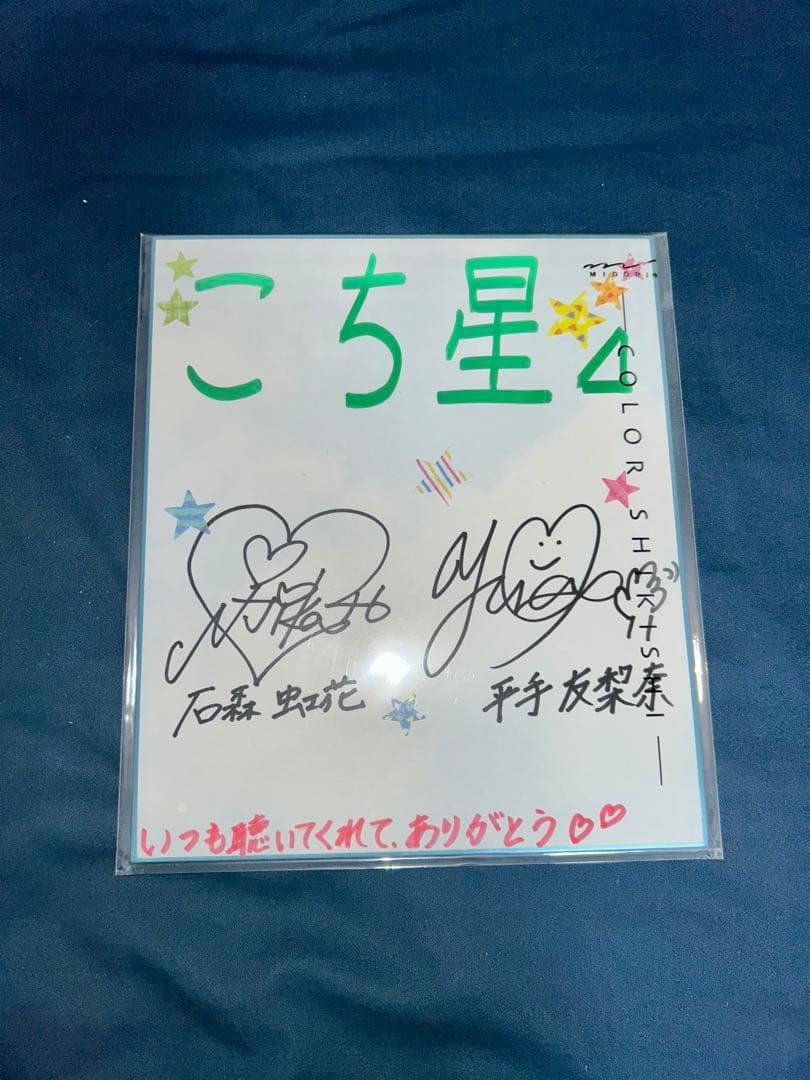 こち星
MIDORI
COLOR SHIKISHI
石森 虹花
平手 友梨奈
いつも聴いてくれて、ありがとう♡♡